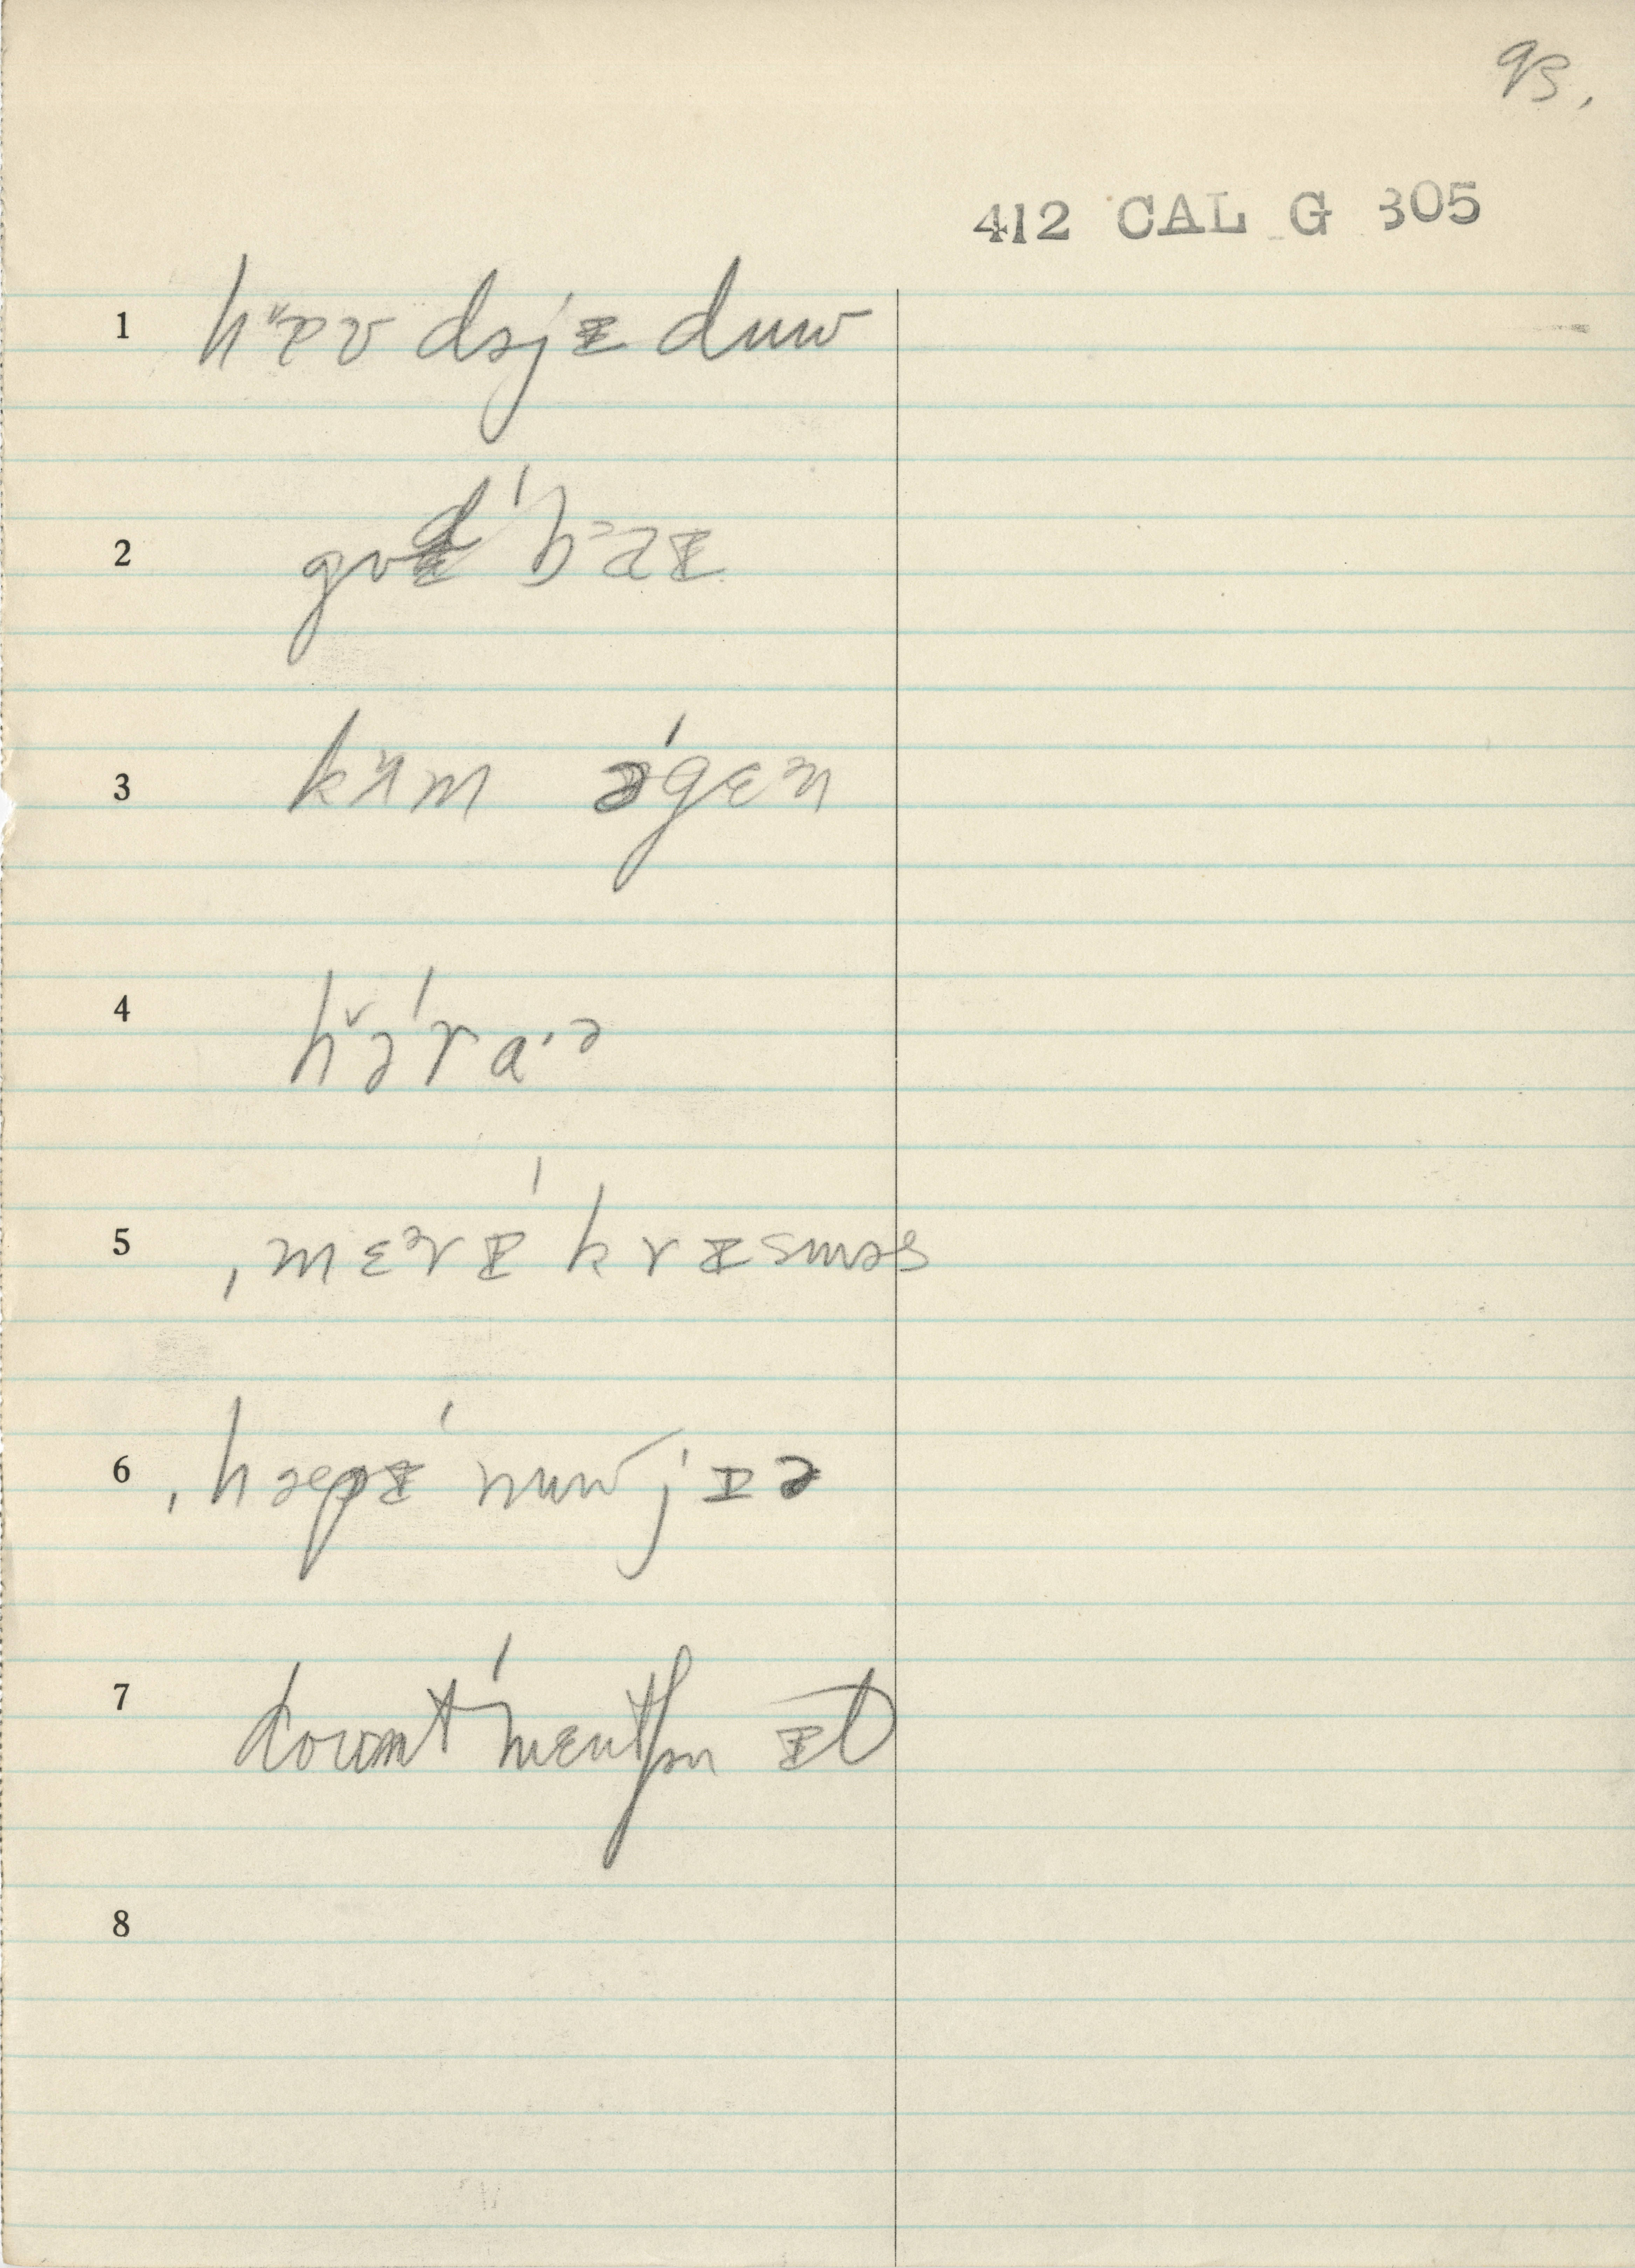 93.
412 CAL G 305
1 hæʊ dəjɪ duw
2 gʊd ˈbaɪ
3 kʌm əˈgɛn
4 həˈra·ə
5 ˌmɛrɪ ˈkrɪsməs
6 ˌhæpɪ ˈnuw jɪə
7 doʊnt ˈmɛnʃən ɪt
8